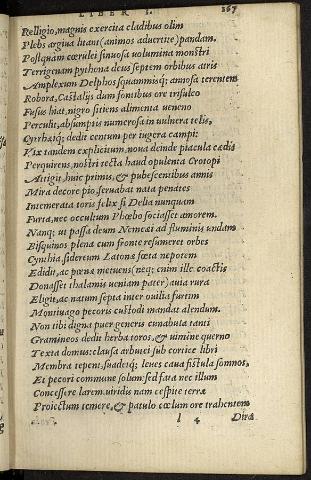 LIBER I. 267
Relligio, magnis exercita cladibus olim
Plebs argiua litant (animos aduertite) pandam.
Postquam cœrulei sinuosa uolumina monstri
Terrigenam pythona deus septem orbibus atris
Amplexum Delphos squammisq; annosa terentem
Robora, Castalijs dum fontibus ore trisulco
Fusus hiat, nigro sitiens alimenta ueneno
Perculit, absumptis numerosa in uulnera telis,
Cyrrhæiq; dedit centum per iugera campi:
Vix tandem explicitum, noua deinde piacula cædis
Perquirens, nostri tecta haud opulenta Crotopi
Attigit, huic primis, & pubescentibus annis
Mira decore pio, seruabat nata penates
Intemerata toris felix si Delia nunquam
Furta, nec occultum Phœbo sociasset amorem.
Nanq; ut passa deum Nemeæi ad fluminis undam
Bisquinos plena cum fronte resumeret orbes
Cynthia, sidereum Latonæ fœta nepotem
Edidit, ac pœnæ metuens (neq; enim ille coactis
Donasset thalamis ueniam pater) auia rura
Eligit, ac natum septa inter ouilia furtim
Montiuago pecoris custodi mandat alendum.
Non tibi digna puer generis cunabula tanti
Gramineos dedit herba toros, & uimine querno
Texta domus: clausa arbutei sub cortice libri
Membra tepent, suadetq; leues caua fistula somnos,
Et pecori commune solum: sed fata nec illum
Concessere larem. uiridis nam cespite terræ
Proiectum temere, & patulo cœlum ore trahentem
l 4 Dira